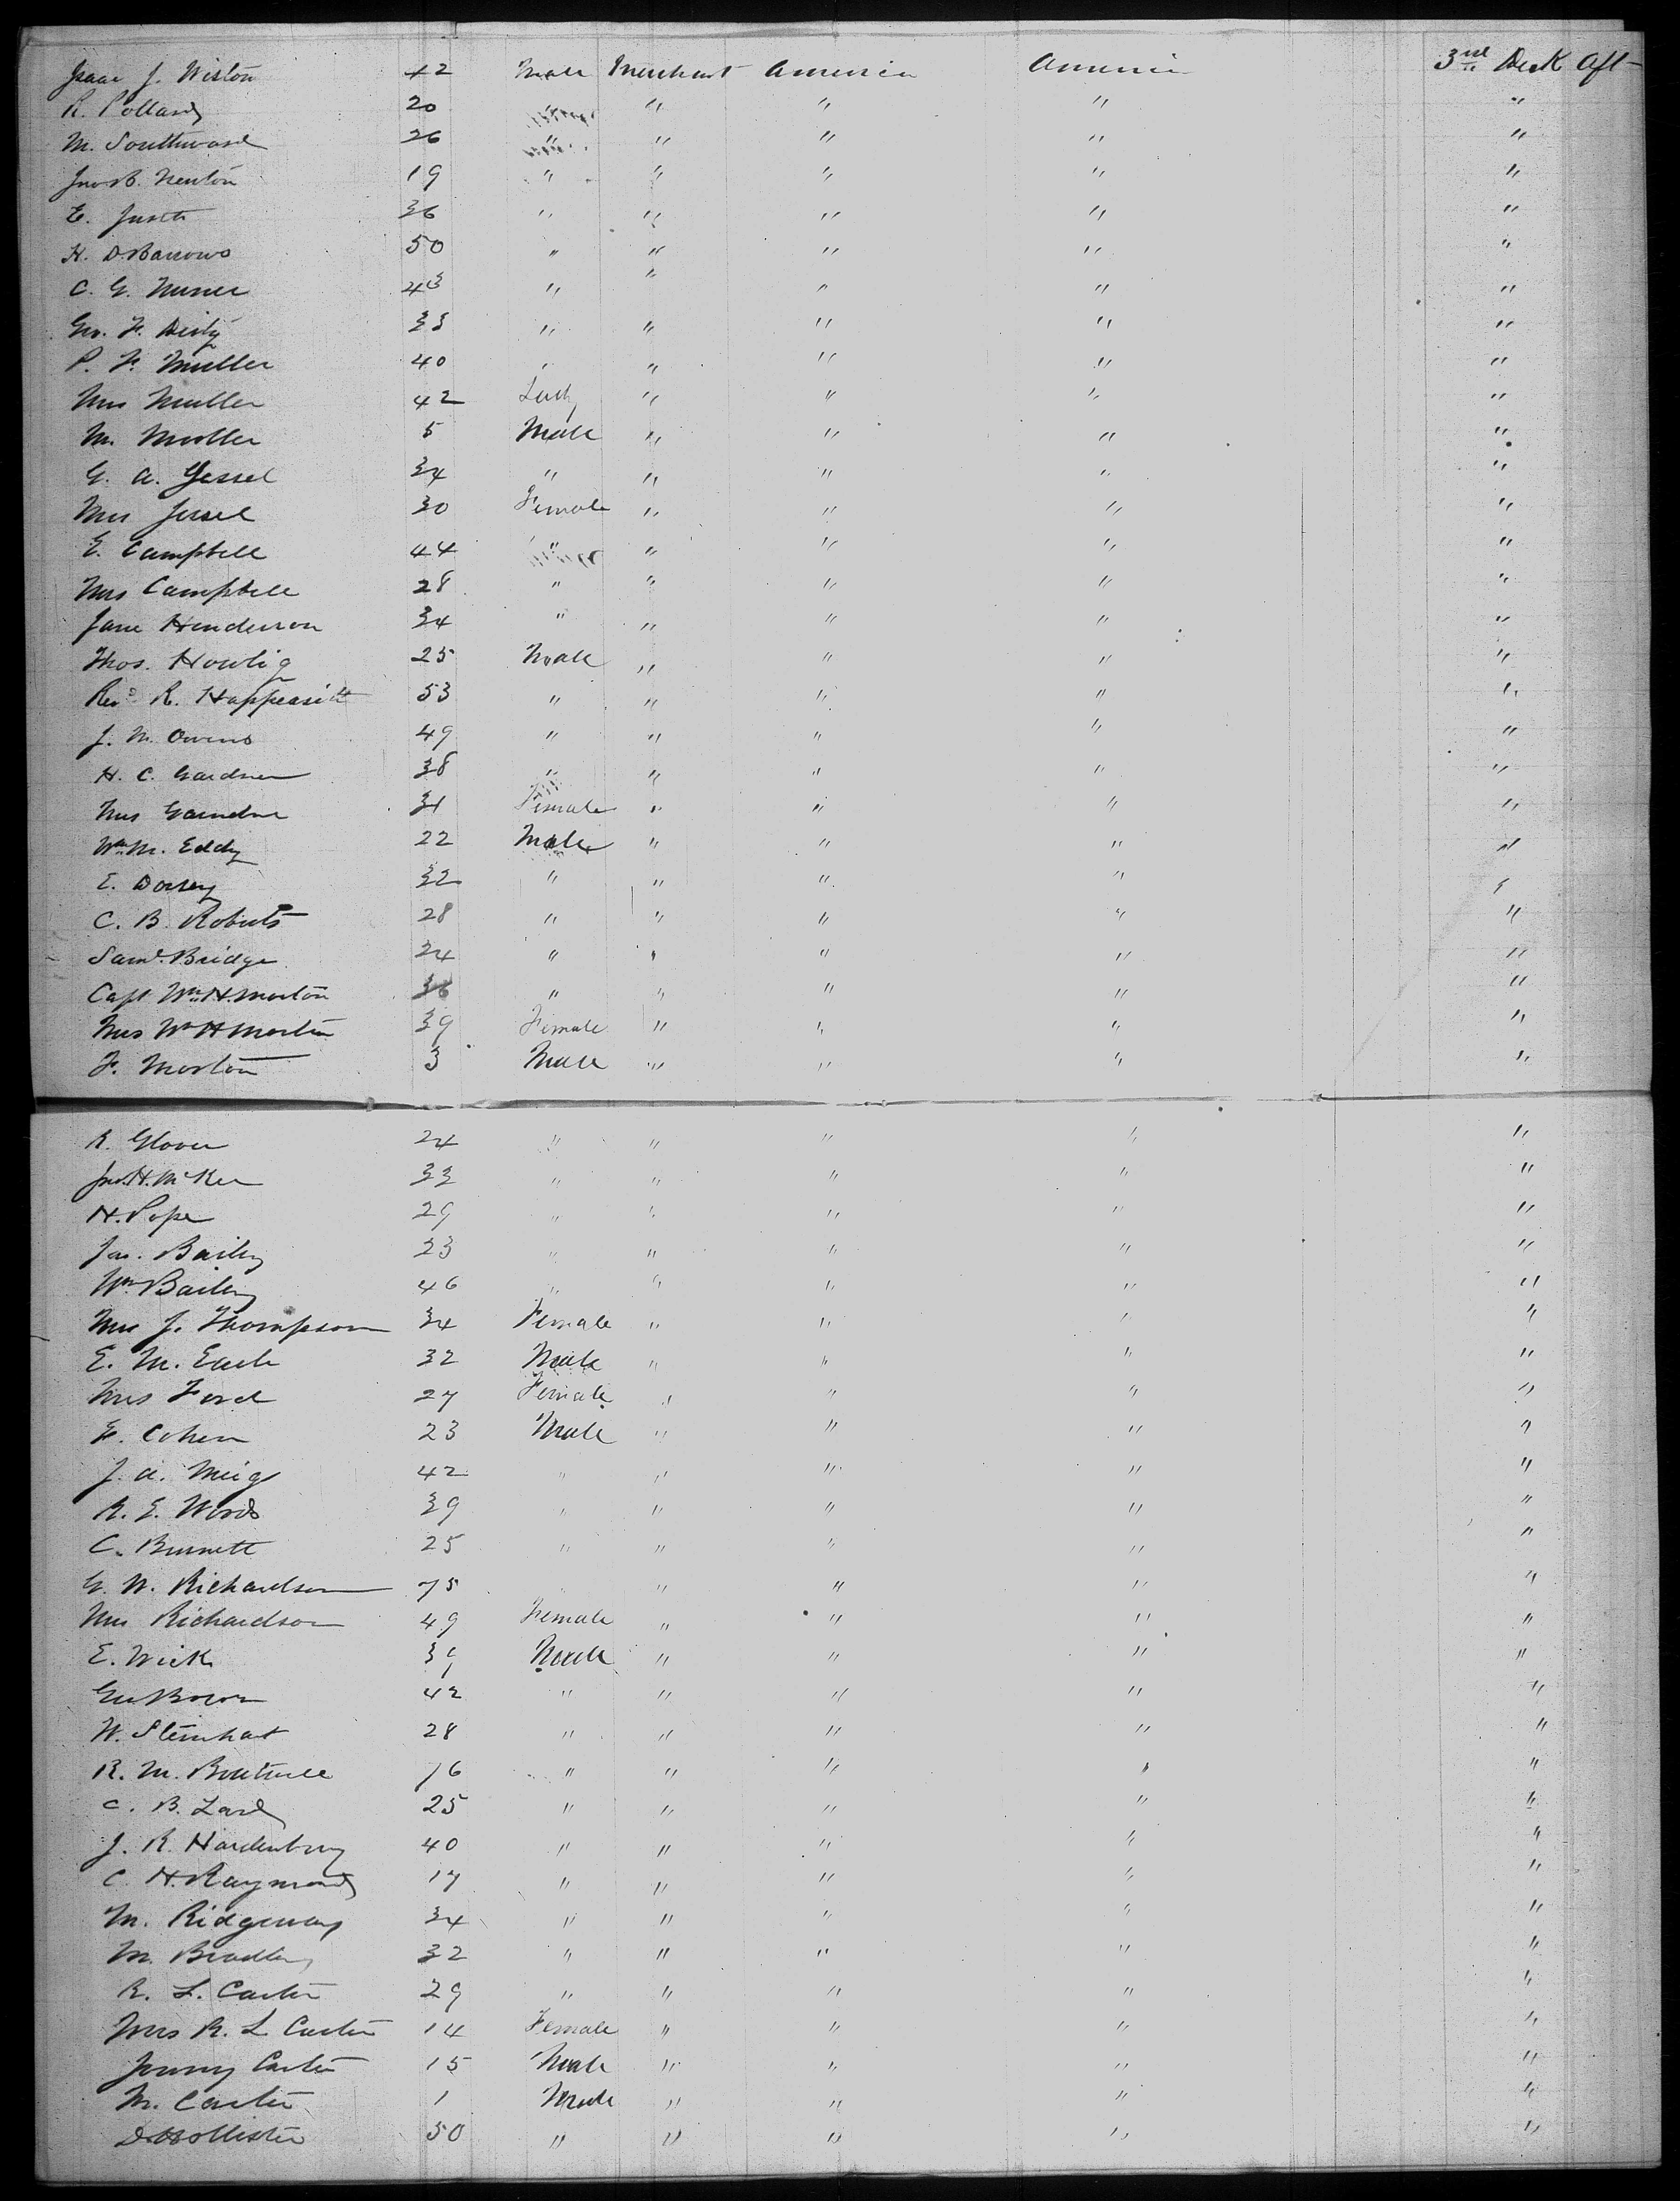 Isaac J. Wiston 42 Male Merchant America America 3rd Deck Aft
R. Pollard 20 " " " "
M. Southward 26 " " " " "
Jno. B. Newton 19 " " " " "
E. 36 " " " " "
H. D. Barrows 50 " " " " "
C. G. 43 " " " " "
Geo. F. 33 " " " " "
P. F. Muller 40 " " " " "
Mrs Muller 42 Lady " " " "
M. Muller 5 Male " " " "
G. A. Jessel 34 " " " " "
Mrs Jessel 30 Female " " " "
E. Campbell 44 " " " " "
Mrs Campbell 28 " " " " "
Jane Henderson 34 " " " " "
Thos. 25 Male " " " "
Revd R. 53 " " " " "
J. M. Owens 49 " " " " "
H. C. Gardner 38 " " " " "
Mrs Gardner 31 Female " " " "
Wm. M. Eddy 22 Male " " " "
E. Dorsey 32 " " " " "
C. B. Roberts 28 " " " " "
Saml. Bridge 24 " " " " "
Capt Wm. H. Morton " " " " "
Mrs Wm H Morton 39 Female " " " "
F. Morton 3 Male " " " "
R. Glover 24 " " " " "
Jno. H. McKee 33 " " " " "
H. Pope 29 " " " " "
Jas. Bailey 23 " " " " "
Wm Bailey 46 " " " " "
Mrs J. Thompson 34 Female " " " "
E. M. Earle 32 Male " " " "
Mrs Ford 27 Female " " " "
E. Cohen 23 Male " " " "
J. A. Meigs 42 " " " " "
R. E. Woods 39 " " " " "
C. Burnett 25 " " " " "
G. W. Richardson 75 " " " " "
Mrs Richardson 49 Female " " " "
E. Wick 39 Male " " " "
Geo Brown 42 " " " " "
W. Steinhart 28 " " " " "
R. M. 76 " " " " "
C. B. Lard 25 " " " " "
J. R. Hardenburg 40 " " " " "
C. H. Raymond 17 " " " " "
M. Ridgeway 34 " " " " "
M. Bradley 32 " " " " "
R. L. Carter 29 " " " " "
Mrs R. L Carter 14 Female " " " "
Carter 15 Male " " " "
M. Carter 1 Male " " " "
D. Hollister 50 " " " " "